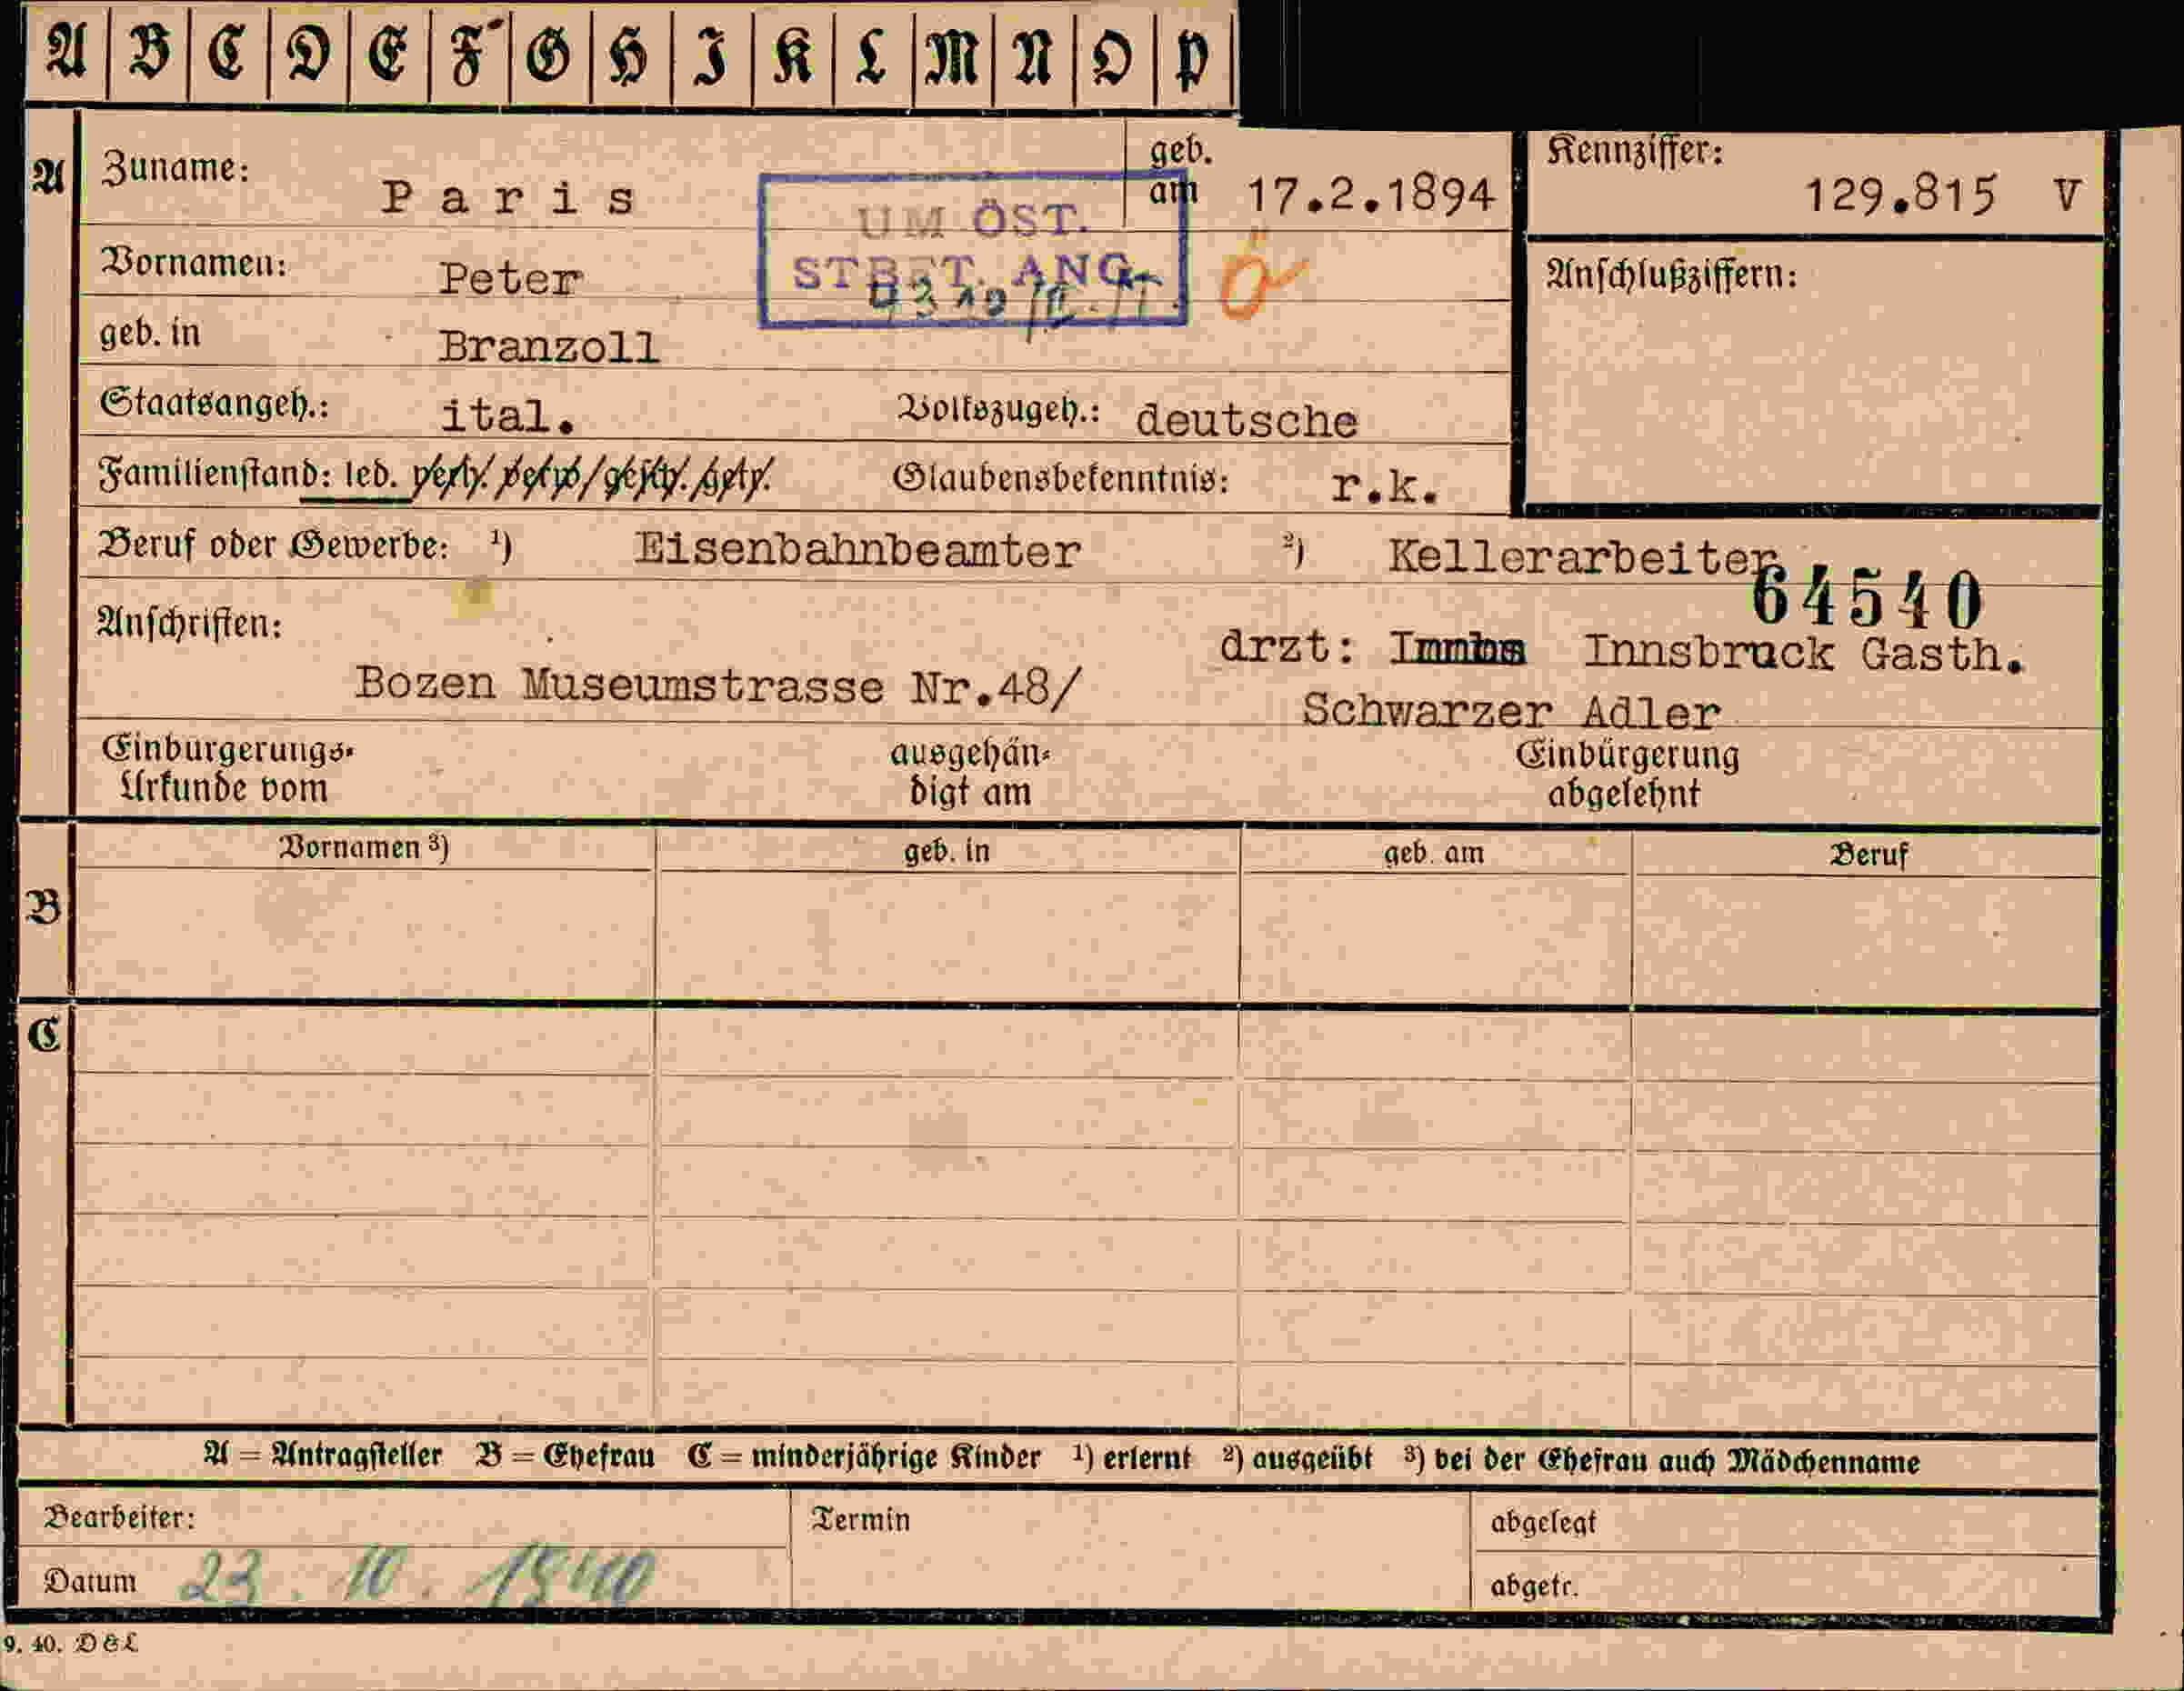 A B C D E F G H I K L M N O P
A Zuname: Paris geb. am 17.2.1894 Kennziffer: 129.815 V
UM ÖST.
STBGT. ANG.
Ö
Vornamen: Peter Anschlußziffern:
geb. in Branzoll
Staatsangeh.: ital. Volkszugeh.: deutsche
Familienstand: led. verh. verw. gesch. getr. Glaubensbekenntnis: r.k.
Beruf oder Gewerbe: 1) Eisenbahnbeamter 2) Kellerarbeiter
64540
Anschriften: drzt: Innsbruck Gasth.
Bozen Museumstrasse Nr.48/ Schwarzer Adler
Einbürgerungs- ausgehän- Einbürgerung
Urkunde vom digt am abgelehnt
Vornamen 3) geb. in geb. am Beruf
B
C
A = Antragsteller B = Ehefrau C = minderjährige Kinder 1) erlernt 2) ausgeübt 3) bei der Ehefrau auch Mädchenname
Bearbeiter: Termin abgelegt
Datum 23. 10. 1940 abgetr.
9. 40. D&L